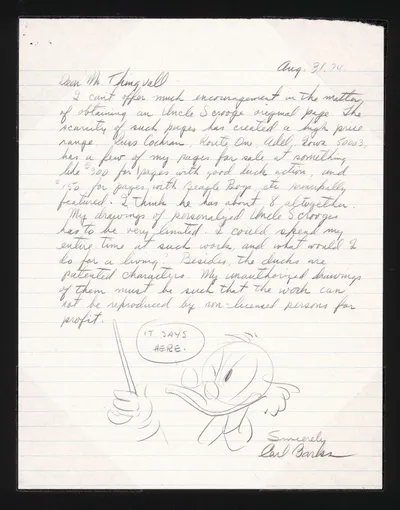 Aug. 31, 74
Dear Mr. Thingvall
I can't offer much encouragement in the matter
of obtaining an Uncle Scrooge original page. The
scarcity of such pages has created a high price
range. Russ Cochran, Route One Adel, Iowa 50003,
has a few of my pages for sale at something
like $300 for pages with good duck action, and
$150 for pages with Beagle Boys, etc. principally
featured. I think he has about 8 altogether.
My drawings of personalized Uncle Scrooges
has to be very limited. I could spend my
entire time at such work and what would I
do for a living? Besides, the ducks are
patented characters. My unauthorized drawings
of them must be such that the work can
not be reproduced by non-licensed persons for
profit.
IT SAYS
HERE.
Sincerely
Carl Barks